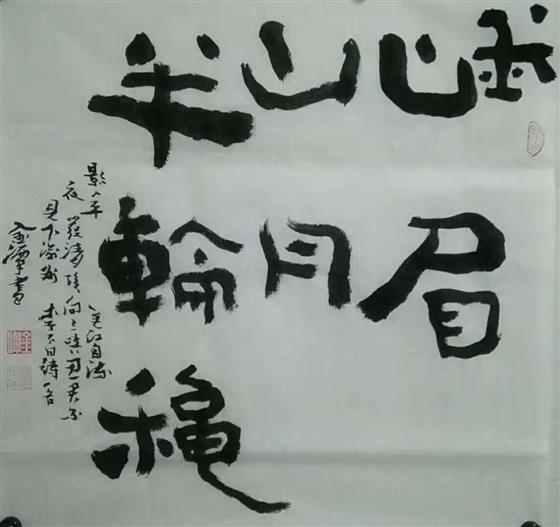 峨眉
山月
半輪穐
影入平羌江水流
夜發清溪向三峡思君不
見下渝州 李太白詩一首
書